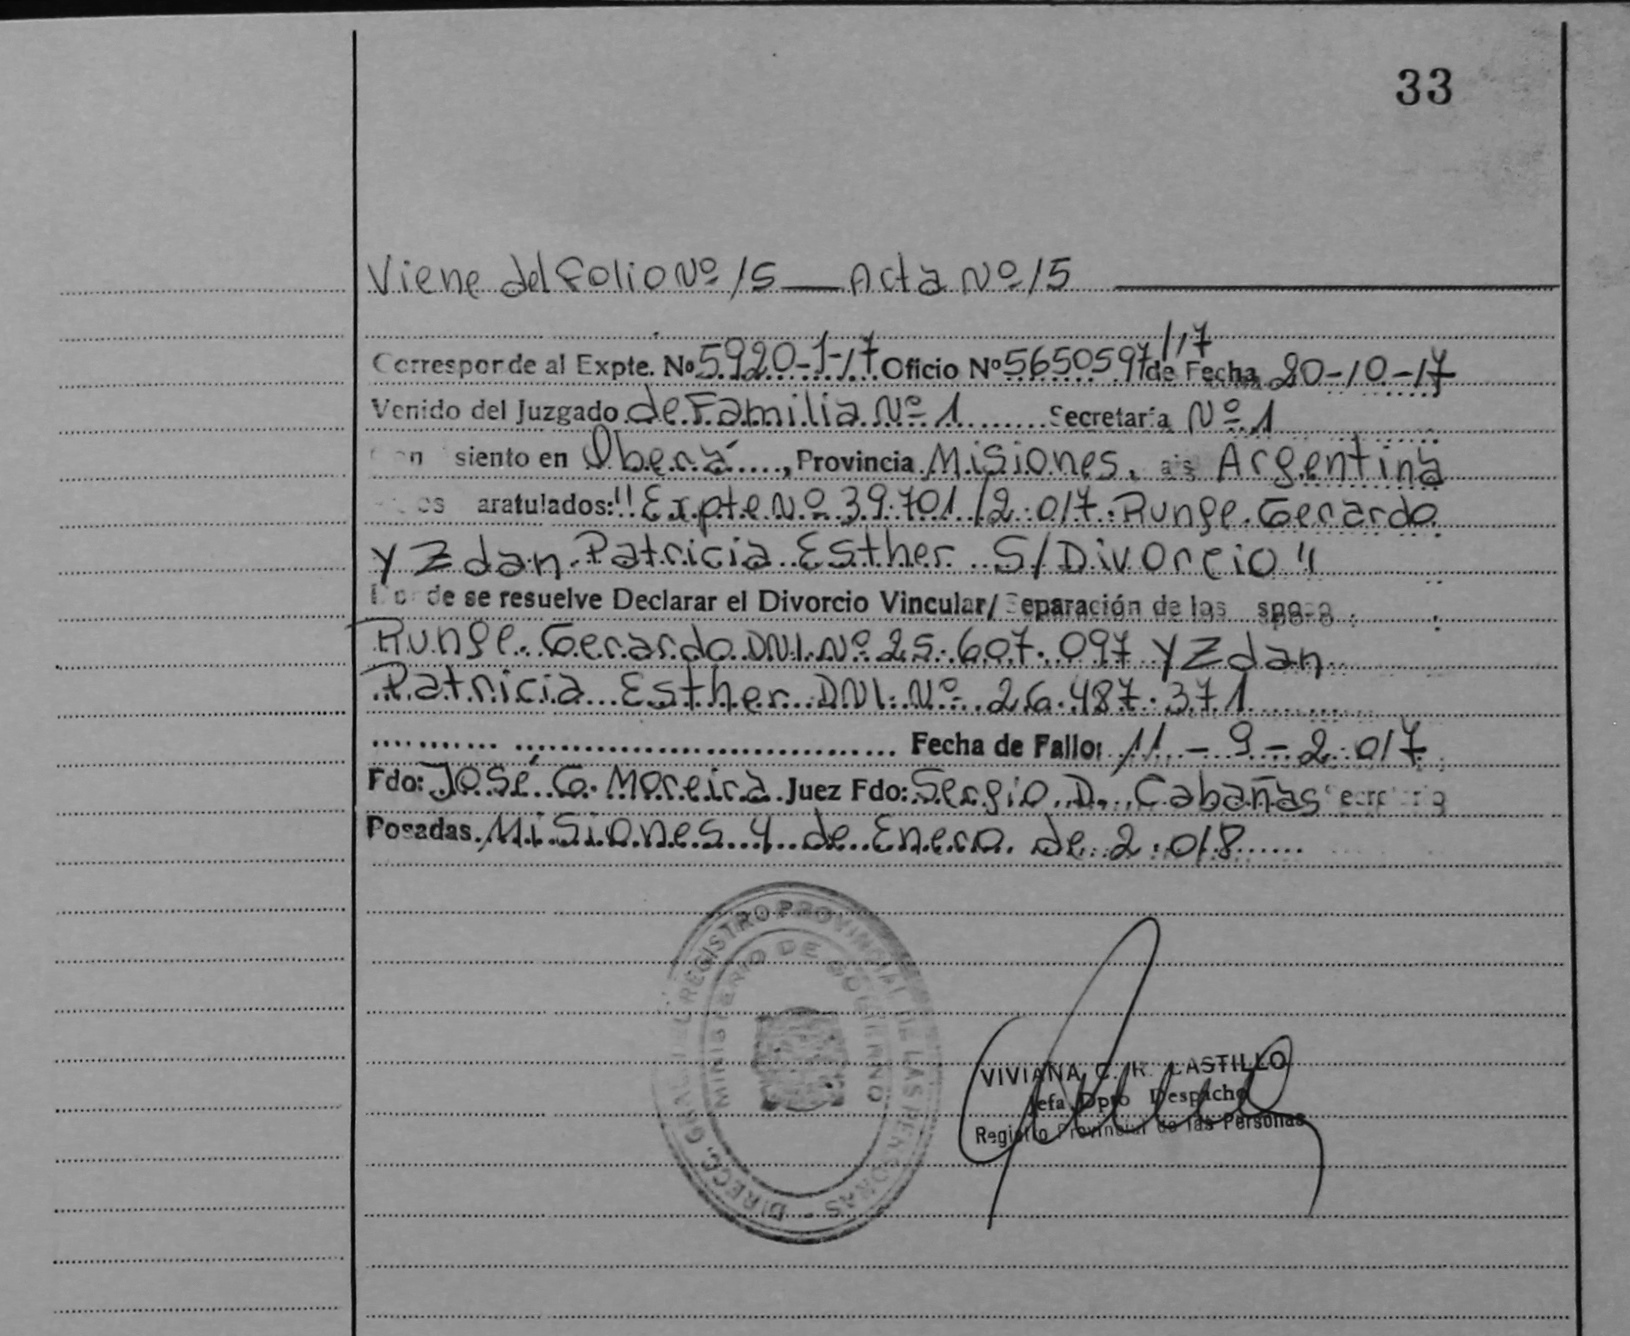 33
Viene del Folio Nº 15 — Acta Nº 15
/17
Corresponde al Expte. Nº 5920-1-17 Oficio Nº 5650597 de Fecha 20-10-17
Venido del Juzgado de Familia Nº 1 Secretaría Nº 1
siento en Oberá, Provincia Misiones, Argentina
aratulados: "Expte Nº 39.701/2.017. Runge Gerardo
y Zdan Patricia Esther S/Divorcio"
de se resuelve Declarar el Divorcio Vincular/ Separación de los
Runge Gerardo DNI. Nº 25.607.097 y Zdan
Patricia Esther DNI. Nº 26.487.371
Fecha de Fallo: 11-9-2.017
Fdo: José G. Moreira Juez Fdo: Sergio D. Cabañas
Posadas, Misiones 4 de Enero de 2.018
DIRECC. GRAL. DEL REGISTRO PROVINCIAL DE LAS PERSONAS
MINISTERIO DE GOBIERNO
VIVIANA C. R. CASTILLO
Jefa Dpto Despacho
Registro Provincial de las Personas